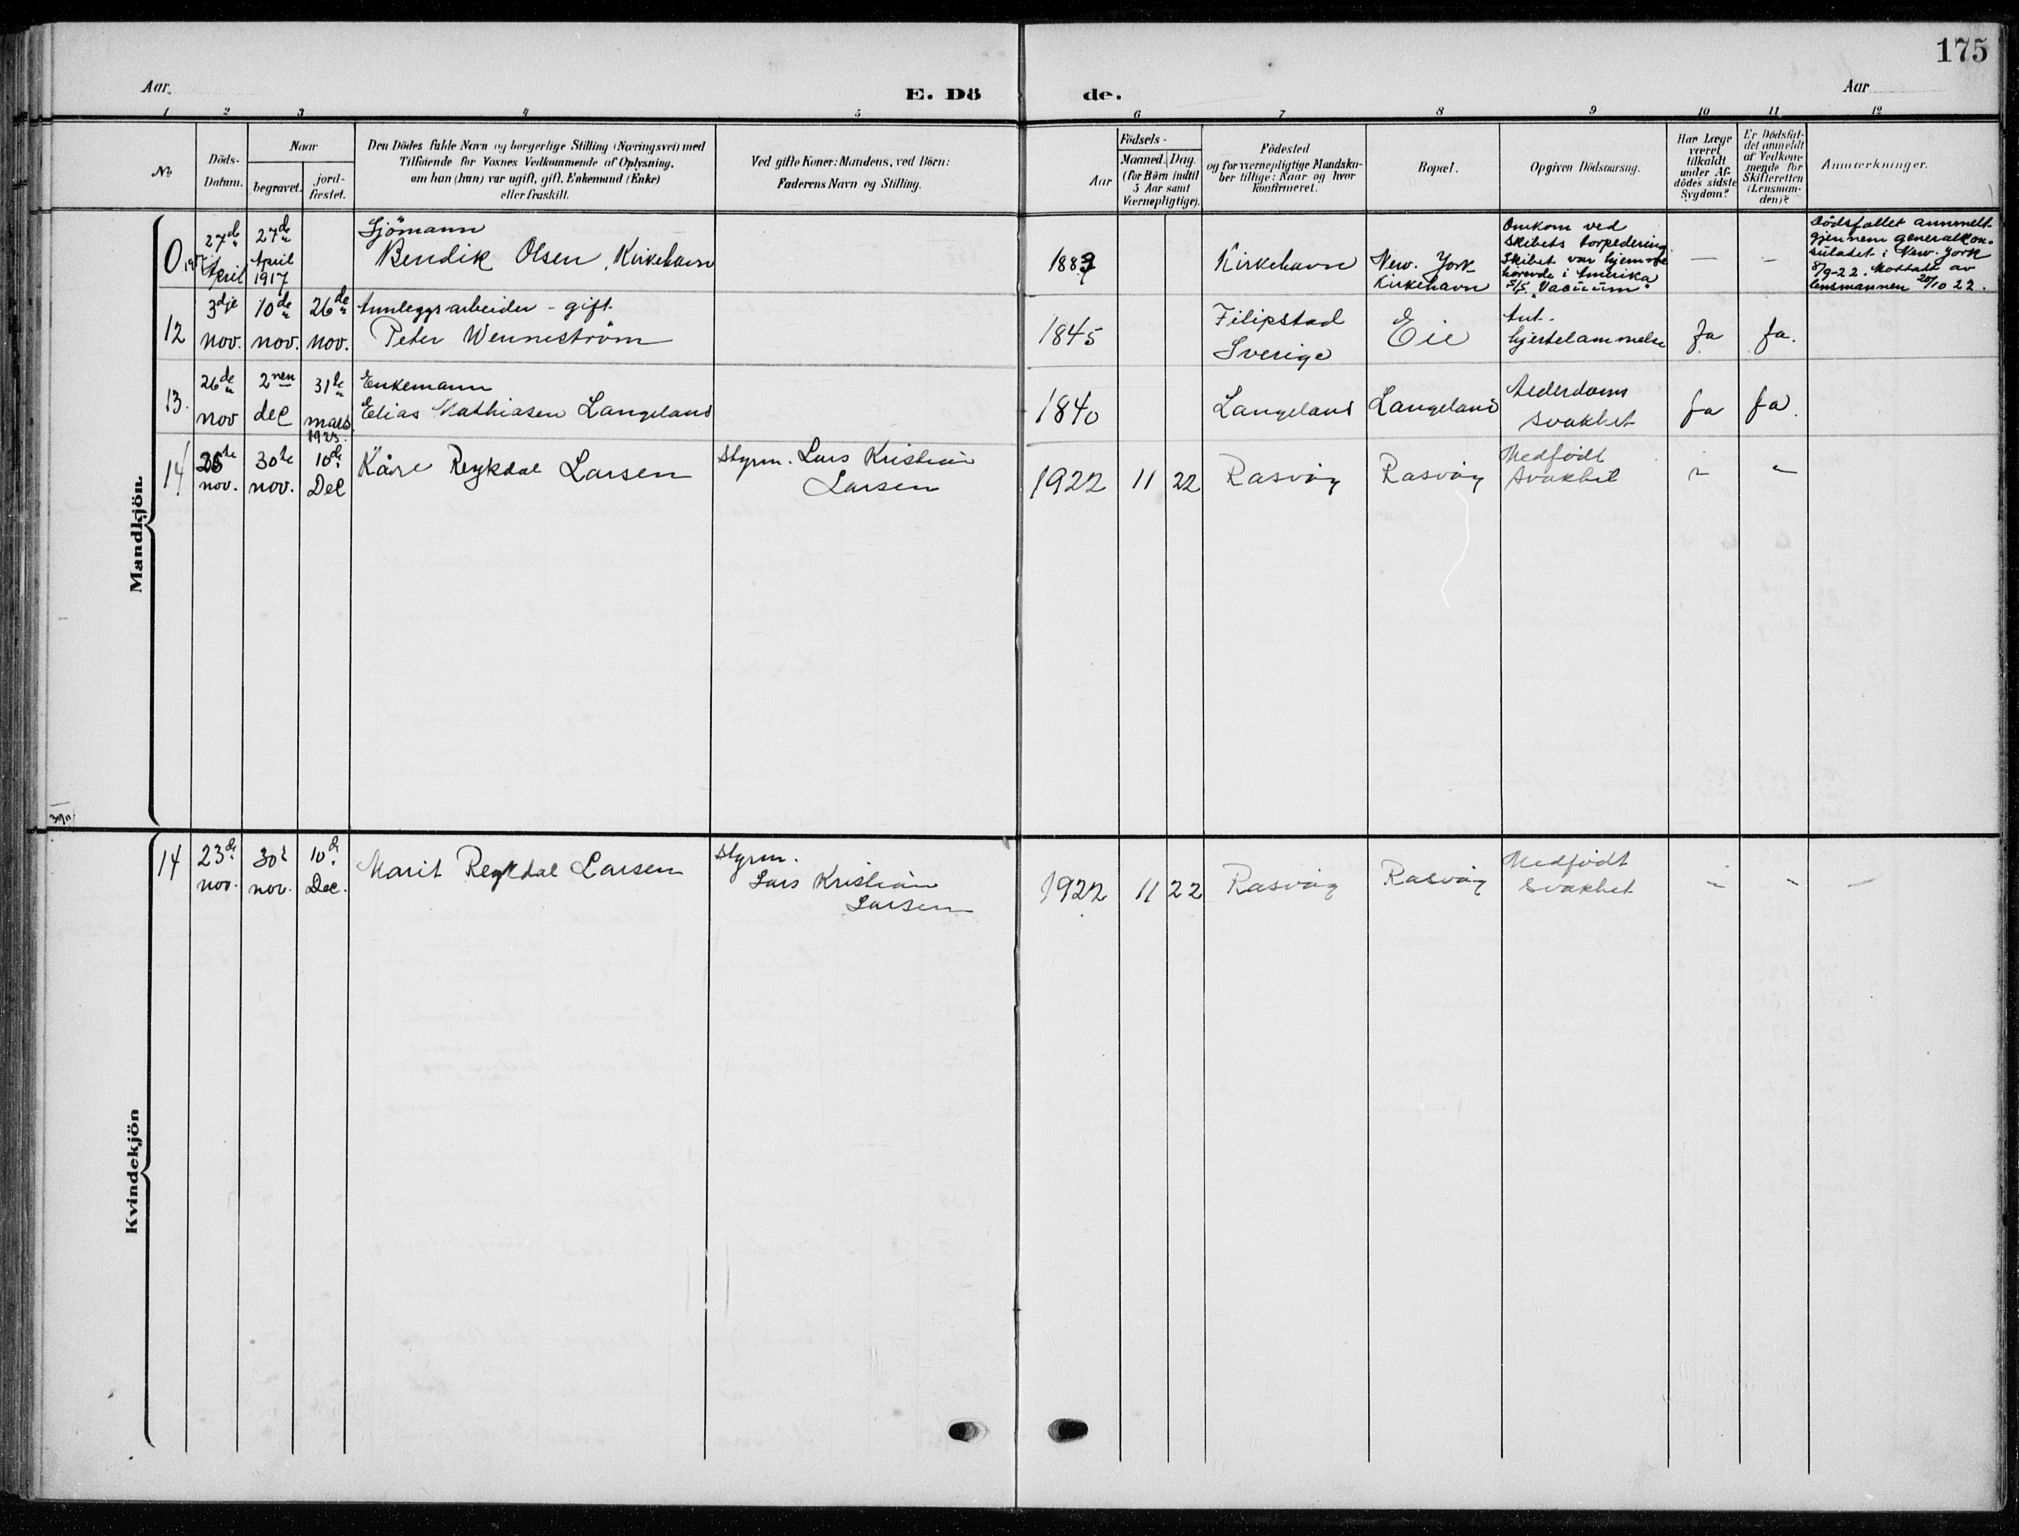 175
Aar.
E. Dö de.
Aar
1 2 3 4 5 6 7 8 9 10 11 12
No
Döds-
Datum.
Naar
begravet.
jord-
fæstet.
Den Dödes fulde Navn og borgerlige Stilling (Næringsvei) med
Tilföiende for Voxnes Vedkommende af Oplysning,
om han (hun) var ugift, gift, Enkemand (Enke)
eller fraskilt.
Ved gifte Koner: Mandens, ved Börn:
Faderens Navn og Stilling.
Födsels-
Aar
Maaned. Dag.
(for Börn indtil
5 Aar samt
Værnepligtige).
Födested
og for værnepligtige Mandska-
ber tillige: Naar og hvor
konfirmeret.
Bopæl.
Opgiven Dödsaarsag.
Har Læge
været
tilkaldt
under Af-
dödes sidste
Sygdom?
Er Dödsfal-
det anmeldt
af Vedkom-
mende for
Skifteretten
(Lensman-
den)?
Anmærkninger.
Mandkjön.
0
27de
April
27de
April
1917
Sjömann
Bendik Olsen, Kirkehavn
1883
Kirkehavn
New. York
Kirkehavn
Omkom ved
skibets torpedering.
Skibet var hjemme
hörende i Amerika
S/S "Vacuum"
—
—
Dödsfallet anmeldt
gjennem generalkon-
sulatet i New. York
8/9-22. Mottatt av
lensmannen 20/10 22.
12
3dje
nov.
10de
nov.
26de
nov.
Anleggsarbeider - gift
Peter Wenneström
1845
Filipstad
Sverige
Eie
Ant.
hjertelammelse
Ja
Ja.
13.
26de
nov
2nen
dec
31te
mars
1923.
Enkemann
Elias Mathiasen Langeland
1840
Langeland
Langeland
Alderdoms
svakhet
Ja
Ja.
14
nov.
30te
nov.
10de
Dec
Kåre Reykdal Larsen
Styrm. Lars Kristian
Larsen
1922 11 22
Rasvåg
Rasvåg
Medfödt
svakhet
Kvindekjön
14
23de
nov.
30te
nov.
10de
Dec.
Marit Reykdal Larsen
Styrm.
Lars Kristian
Larsen
1922 11 22
Rasvåg
Rasvåg
Medfödt
svakhet
–
–
–